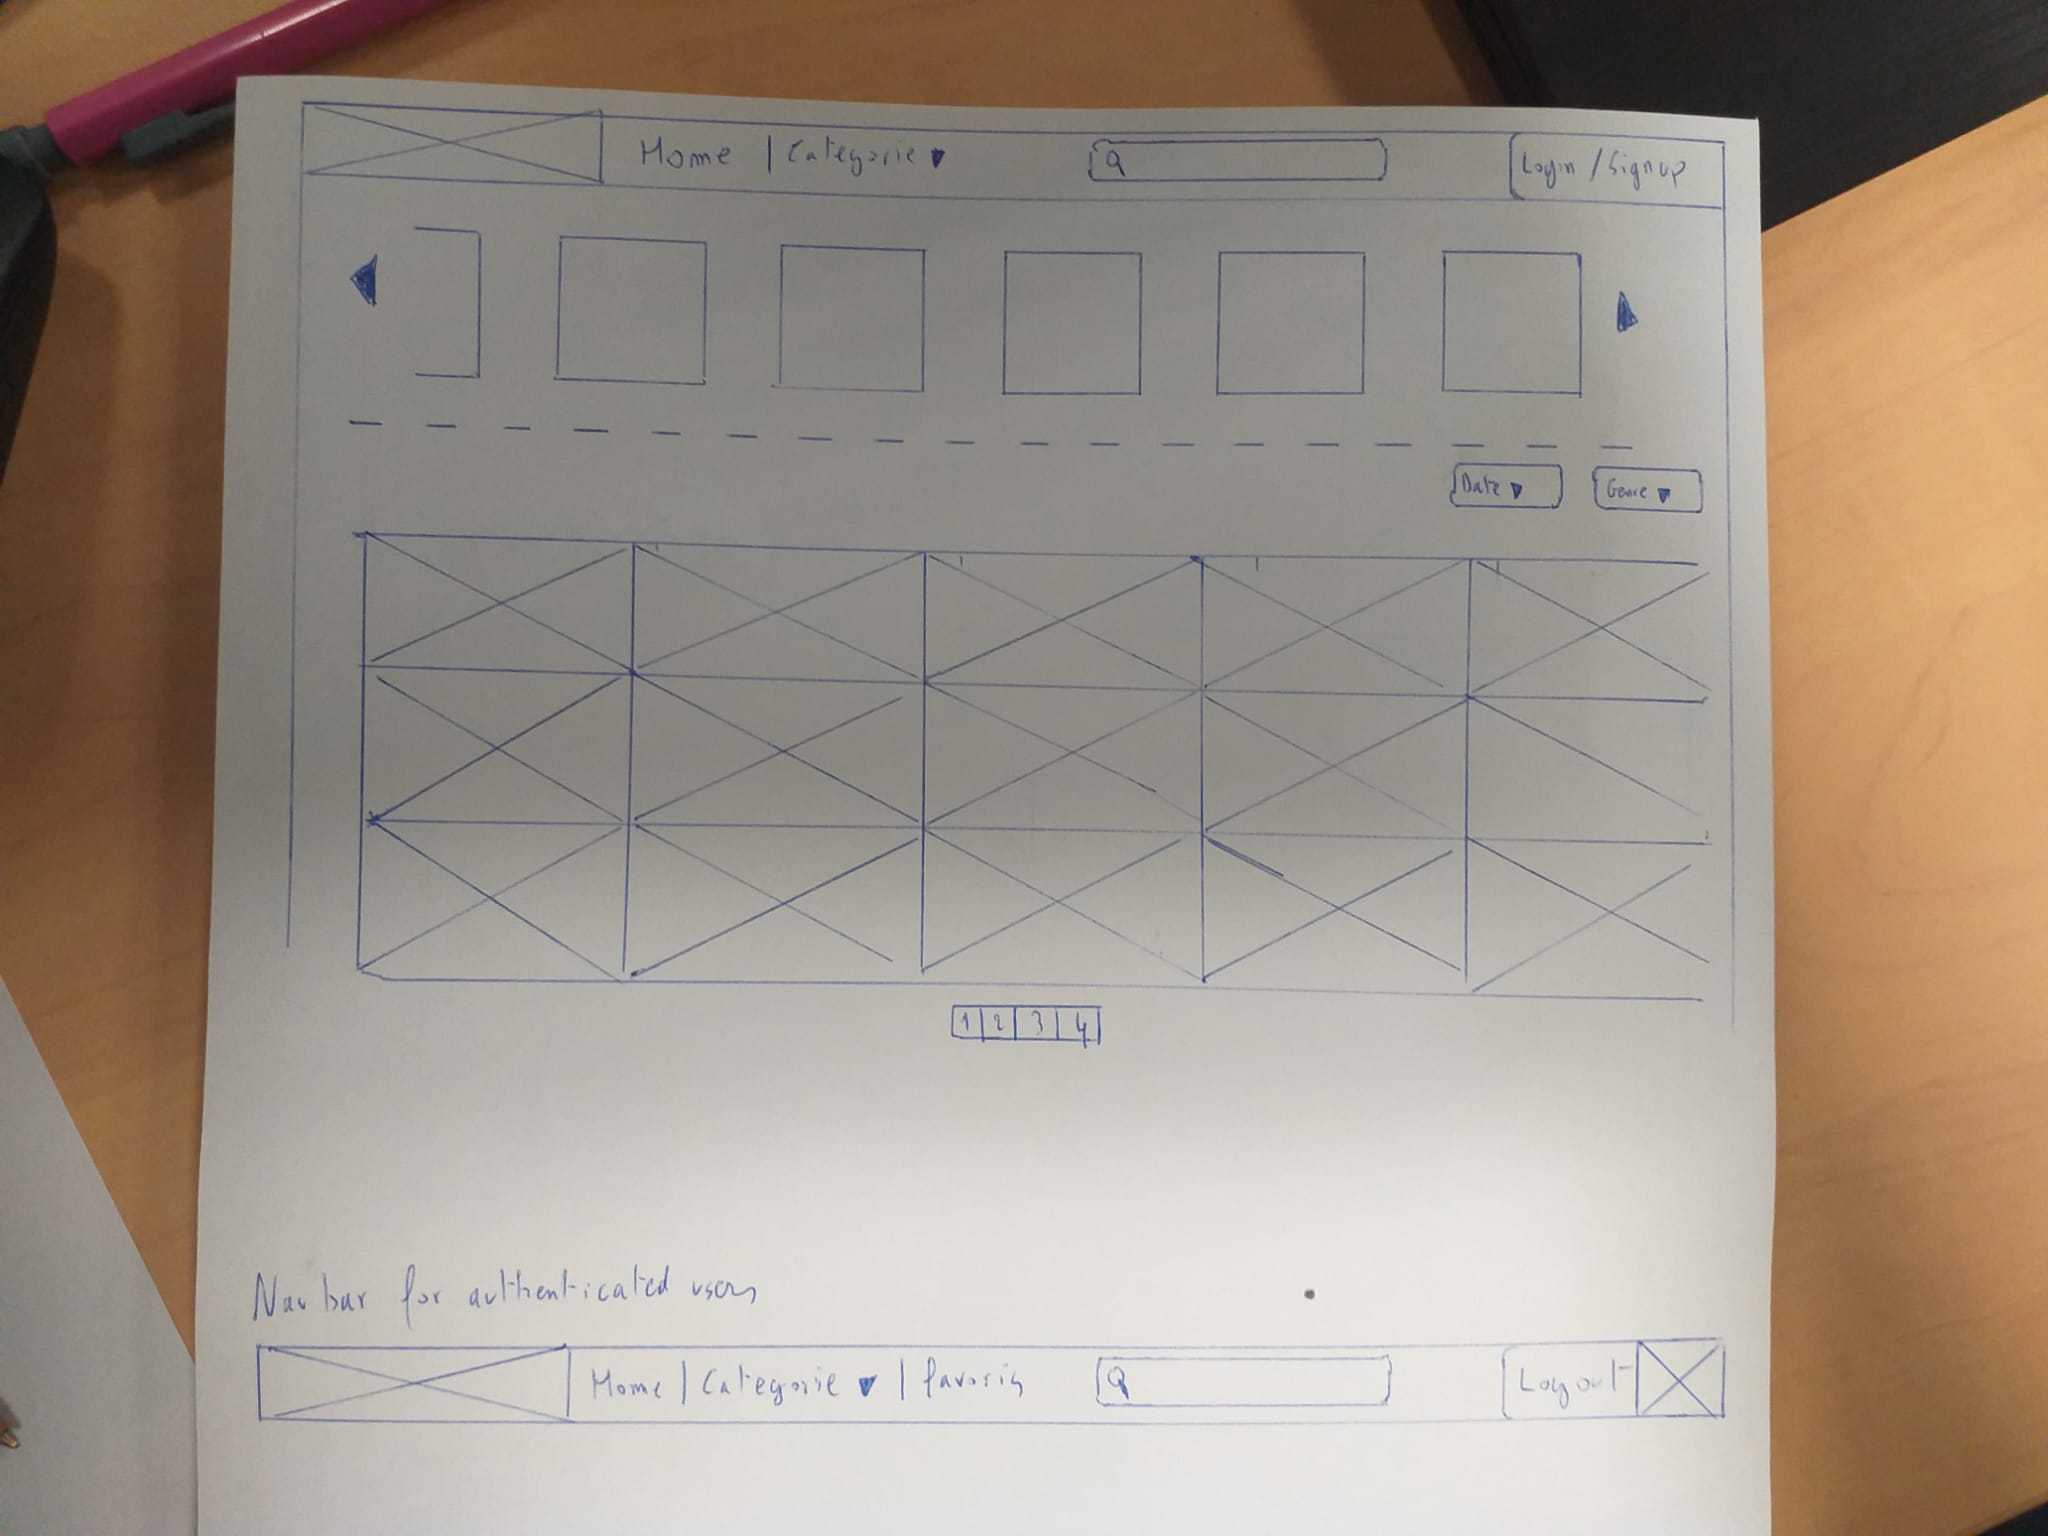 Home | Categorie ▼
Login / Sign up
Date ▼
Genre ▼
1 2 3 4
Navbar for authenticated users
Home | Categorie ▼ | favoris
Logout